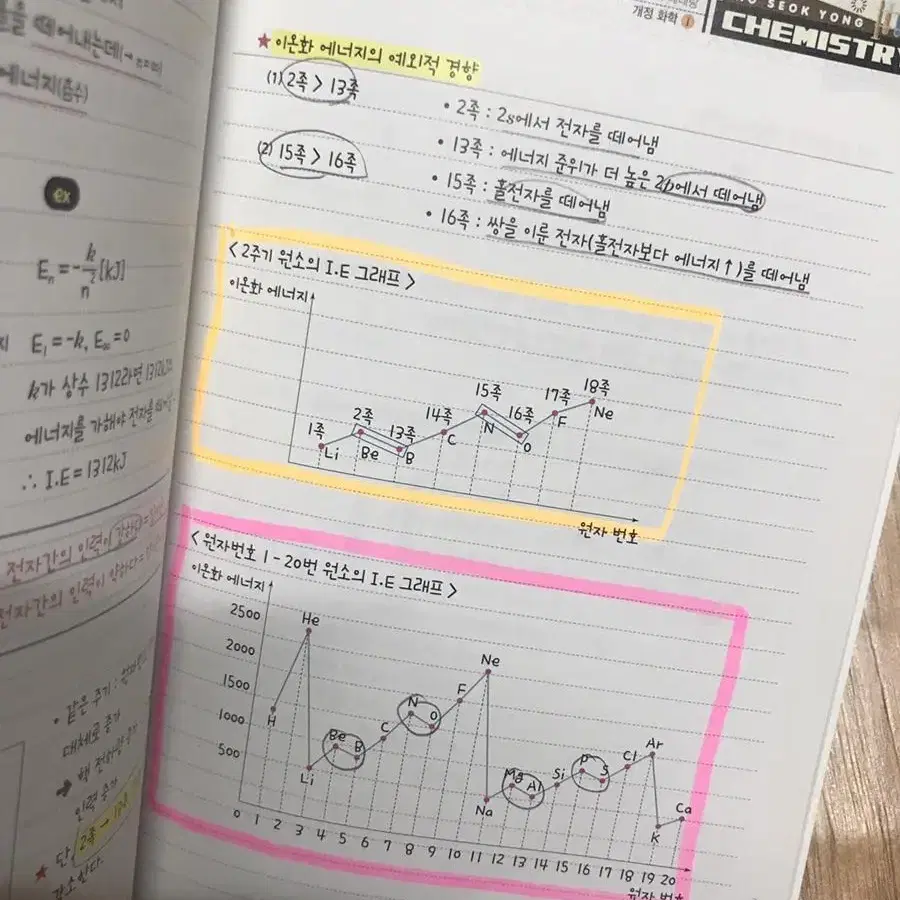 떼어내는데
에너지(흡수)
ex
En = - k/n² [kJ]
E₁ = -k, E∞ = 0
k가 상수 1312라면 1312kJ
에너지를 가해야 전자를
∴ I.E = 1312kJ
전자간의 인력이 강하다 =
전자간의 인력이 약하다 =
• 같은 주기 :
대체로 증가
→ 핵 전하량 증가
인력 증가
★ 단, 2족 →
감소한다.
개정 화학 I
SEOK YONG
CHEMISTR
★ 이온화 에너지의 예외적 경향
(1) 2족 > 13족
• 2족 : 2s에서 전자를 떼어냄
• 13족 : 에너지 준위가 더 높은 2p에서 떼어냄
(2) 15족 > 16족
• 15족 : 홀전자를 떼어냄
• 16족 : 쌍을 이룬 전자(홀전자보다 에너지↑)를 떼어냄
< 2주기 원소의 I.E 그래프 >
이온화 에너지
1족 2족 13족 14족 15족 16족 17족 18족
Li Be B C N O F Ne
원자 번호
< 원자번호 1 - 20번 원소의 I.E 그래프 >
이온화 에너지
2500
2000
1500
1000
500
H He Li Be B C N O F Ne Na Mg Al Si P S Cl Ar K Ca
0 1 2 3 4 5 6 7 8 9 10 11 12 13 14 15 16 17 18 19 20
원자 번호